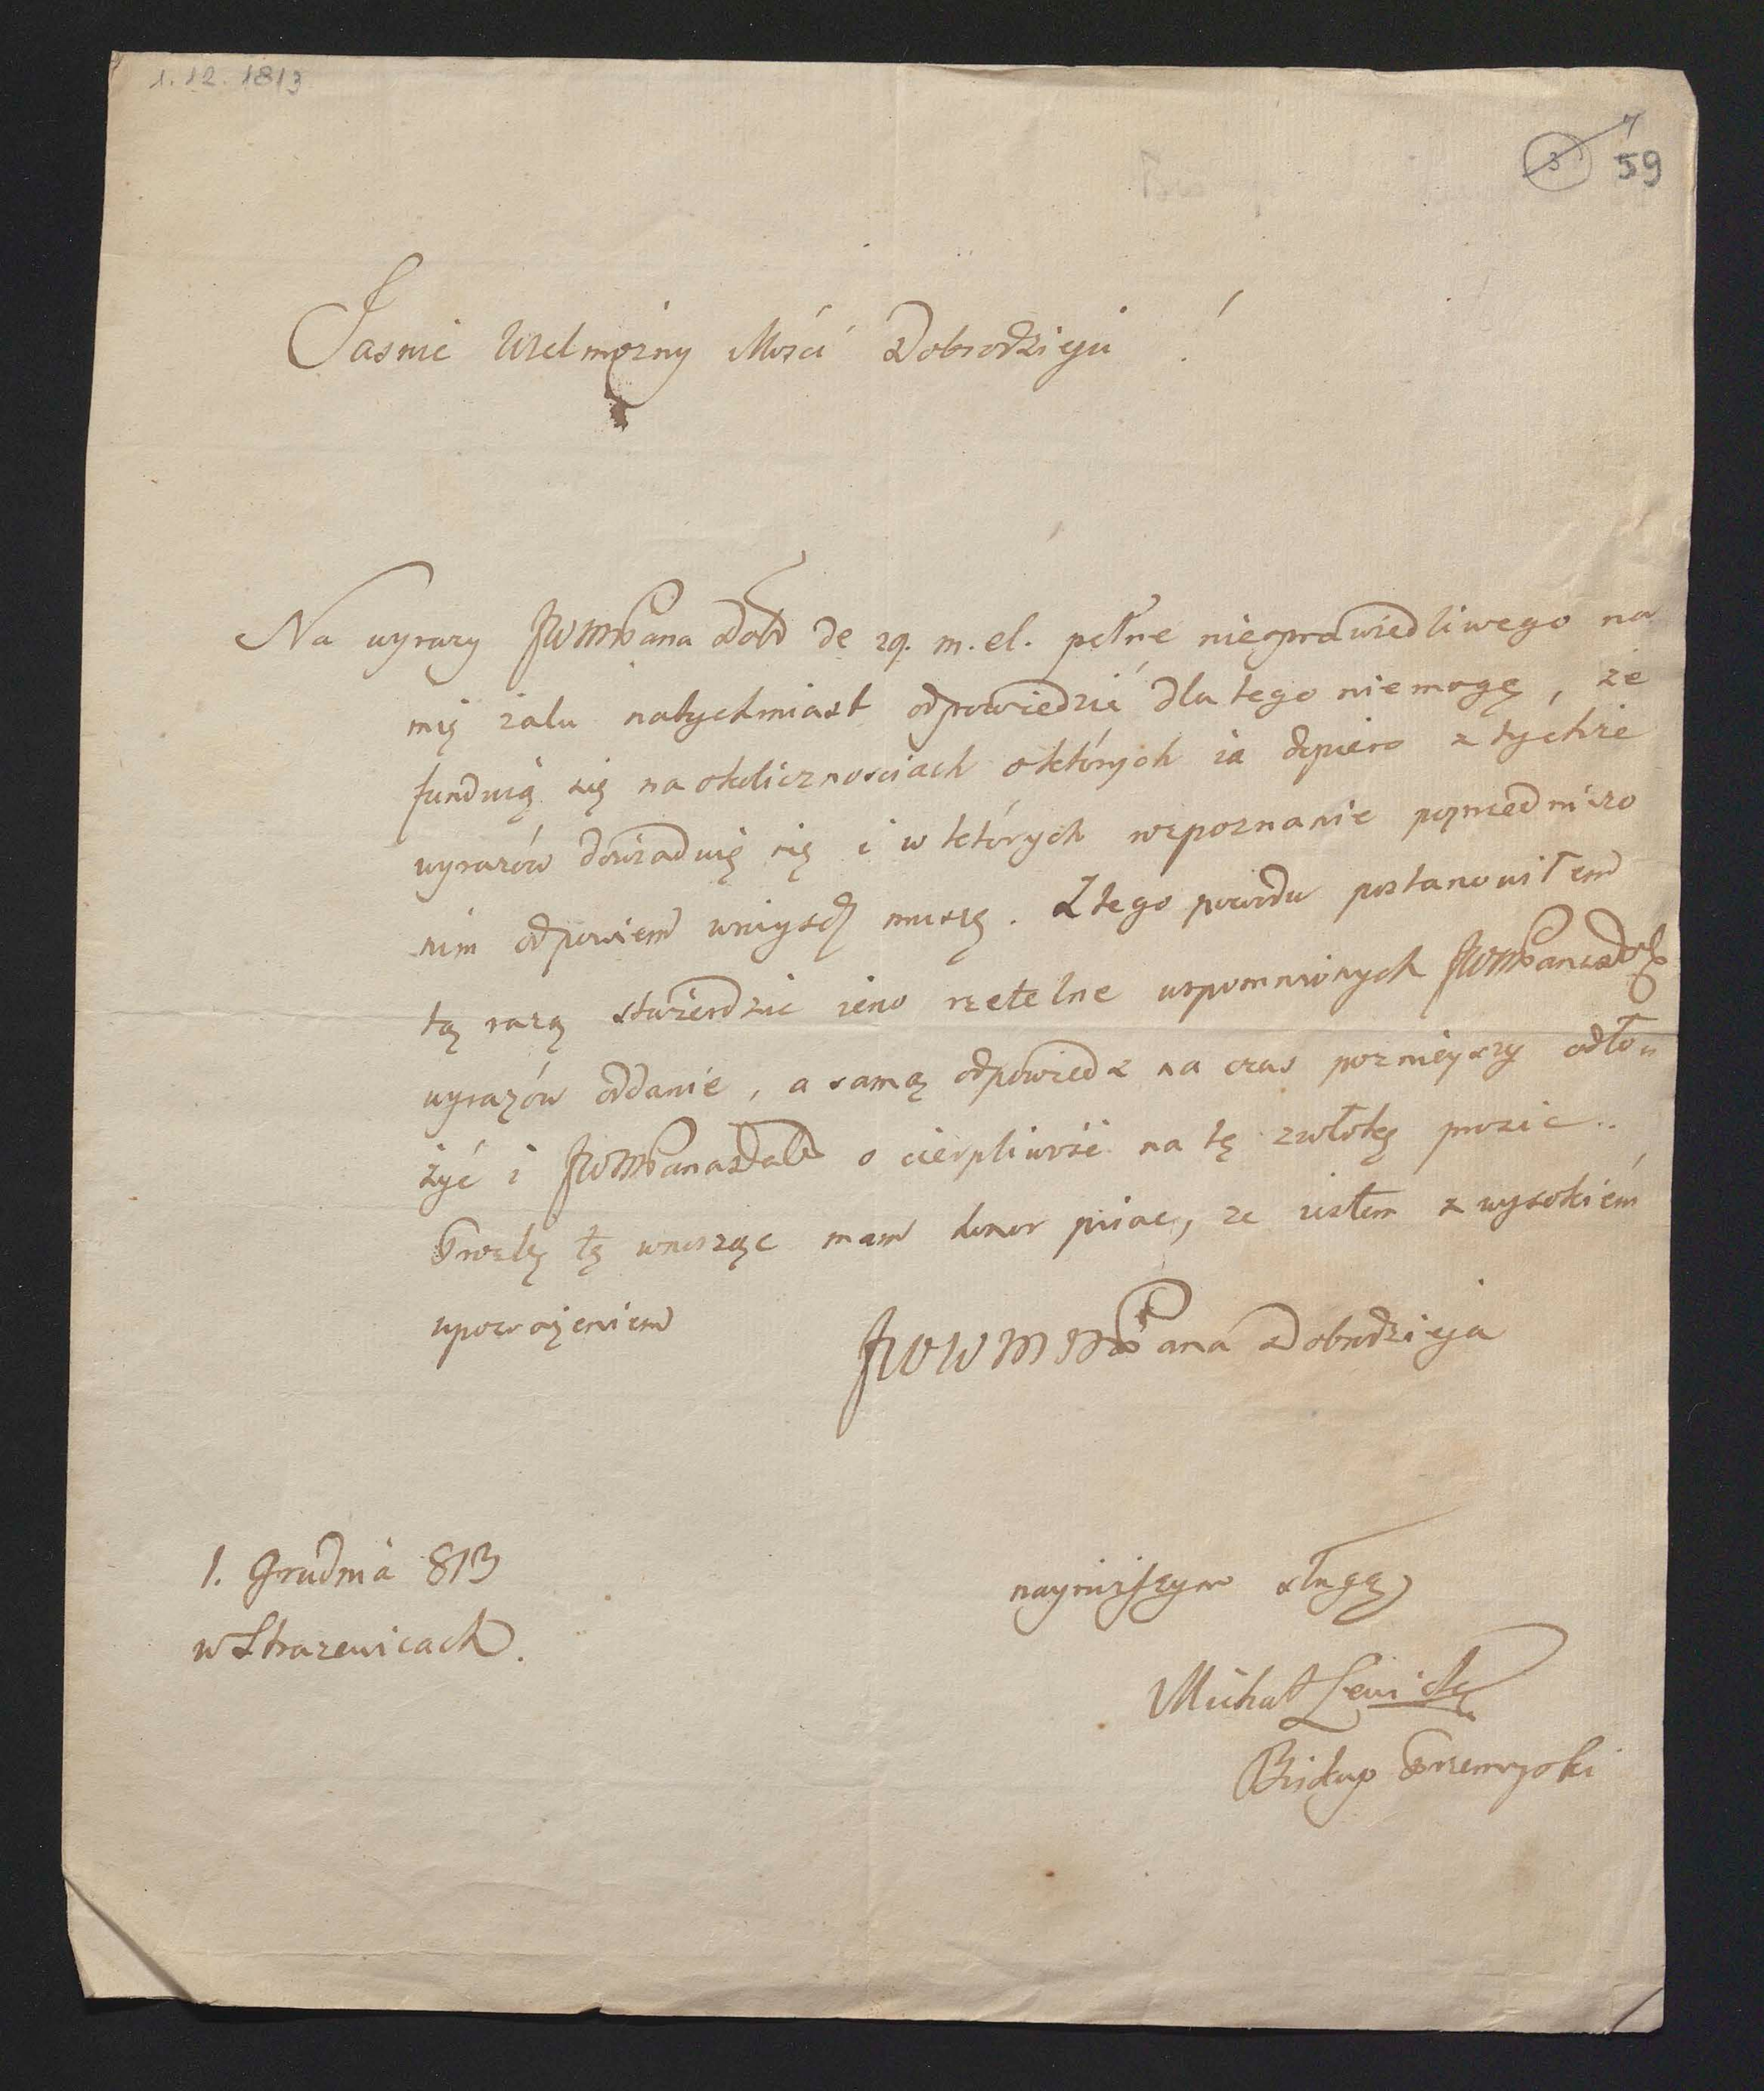 1. 12. 1813
3 59
Jasnie Wielmożny Mości Dobrodzieju !
Na wyrazy JWMPana Dob de 29. m. el. pełne niesprawiedliwego na
mię żalu natychmiast odpowiedzić dla tego niemogę, że
funduią się na okolicznosciach o których ia dopiero z tychże
wyrazów dowiaduię się i w których rozpoznanie poprzedniczo
nim odpowiem wniyść muszę. Z tego powodu postanowiłem
tą razą stwierdzic ieno rzetelne wspomnionych JWMPana Dob
wyrazów oddanie, a samą odpowiedz na czas poznieyszy odło-
żyć i JWMPana Dob o cierpliwość na tę zwłokę prosic..
Prozbę tę wnosząc mam honor pisac, ze iestem z wysokiém
upoważeniem
JWWMMPana Dobrodzieja
1. Grudnia 813
w Strazewicach.
nayniższym sługą
Michał Lewicki
Biskup Przemyski